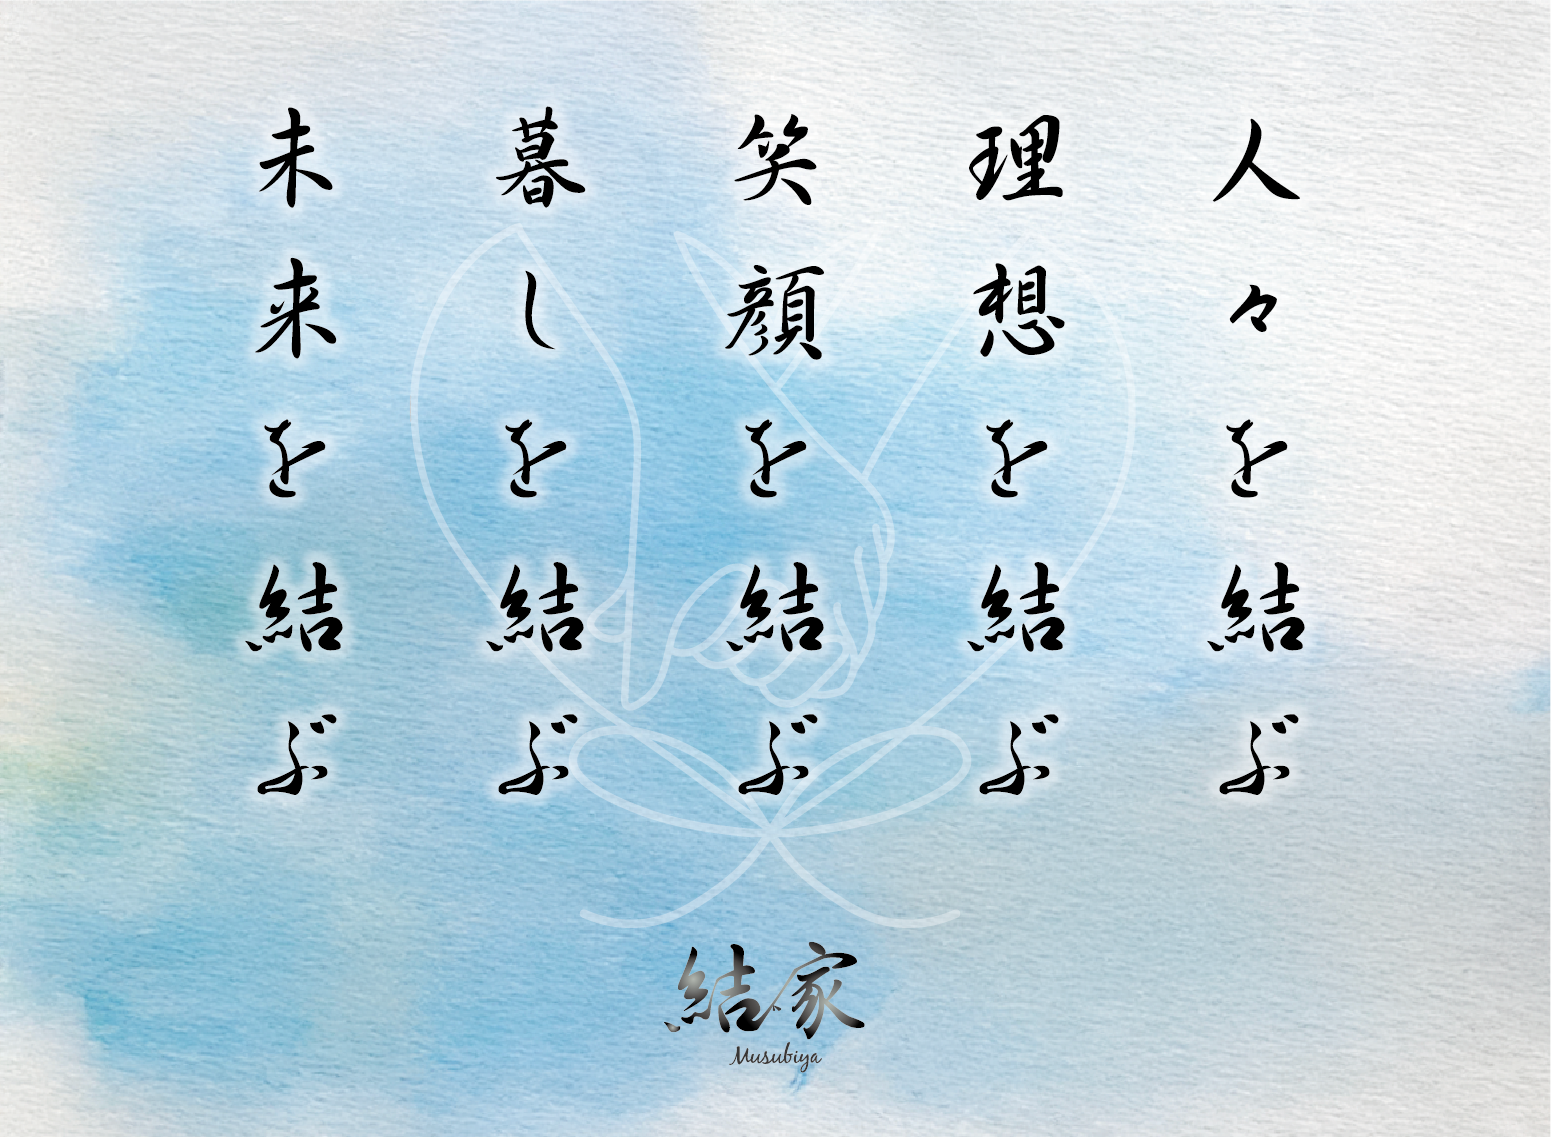 人々を結ぶ
理想を結ぶ
笑顔を結ぶ
暮しを結ぶ
未来を結ぶ
結家
Musubiya